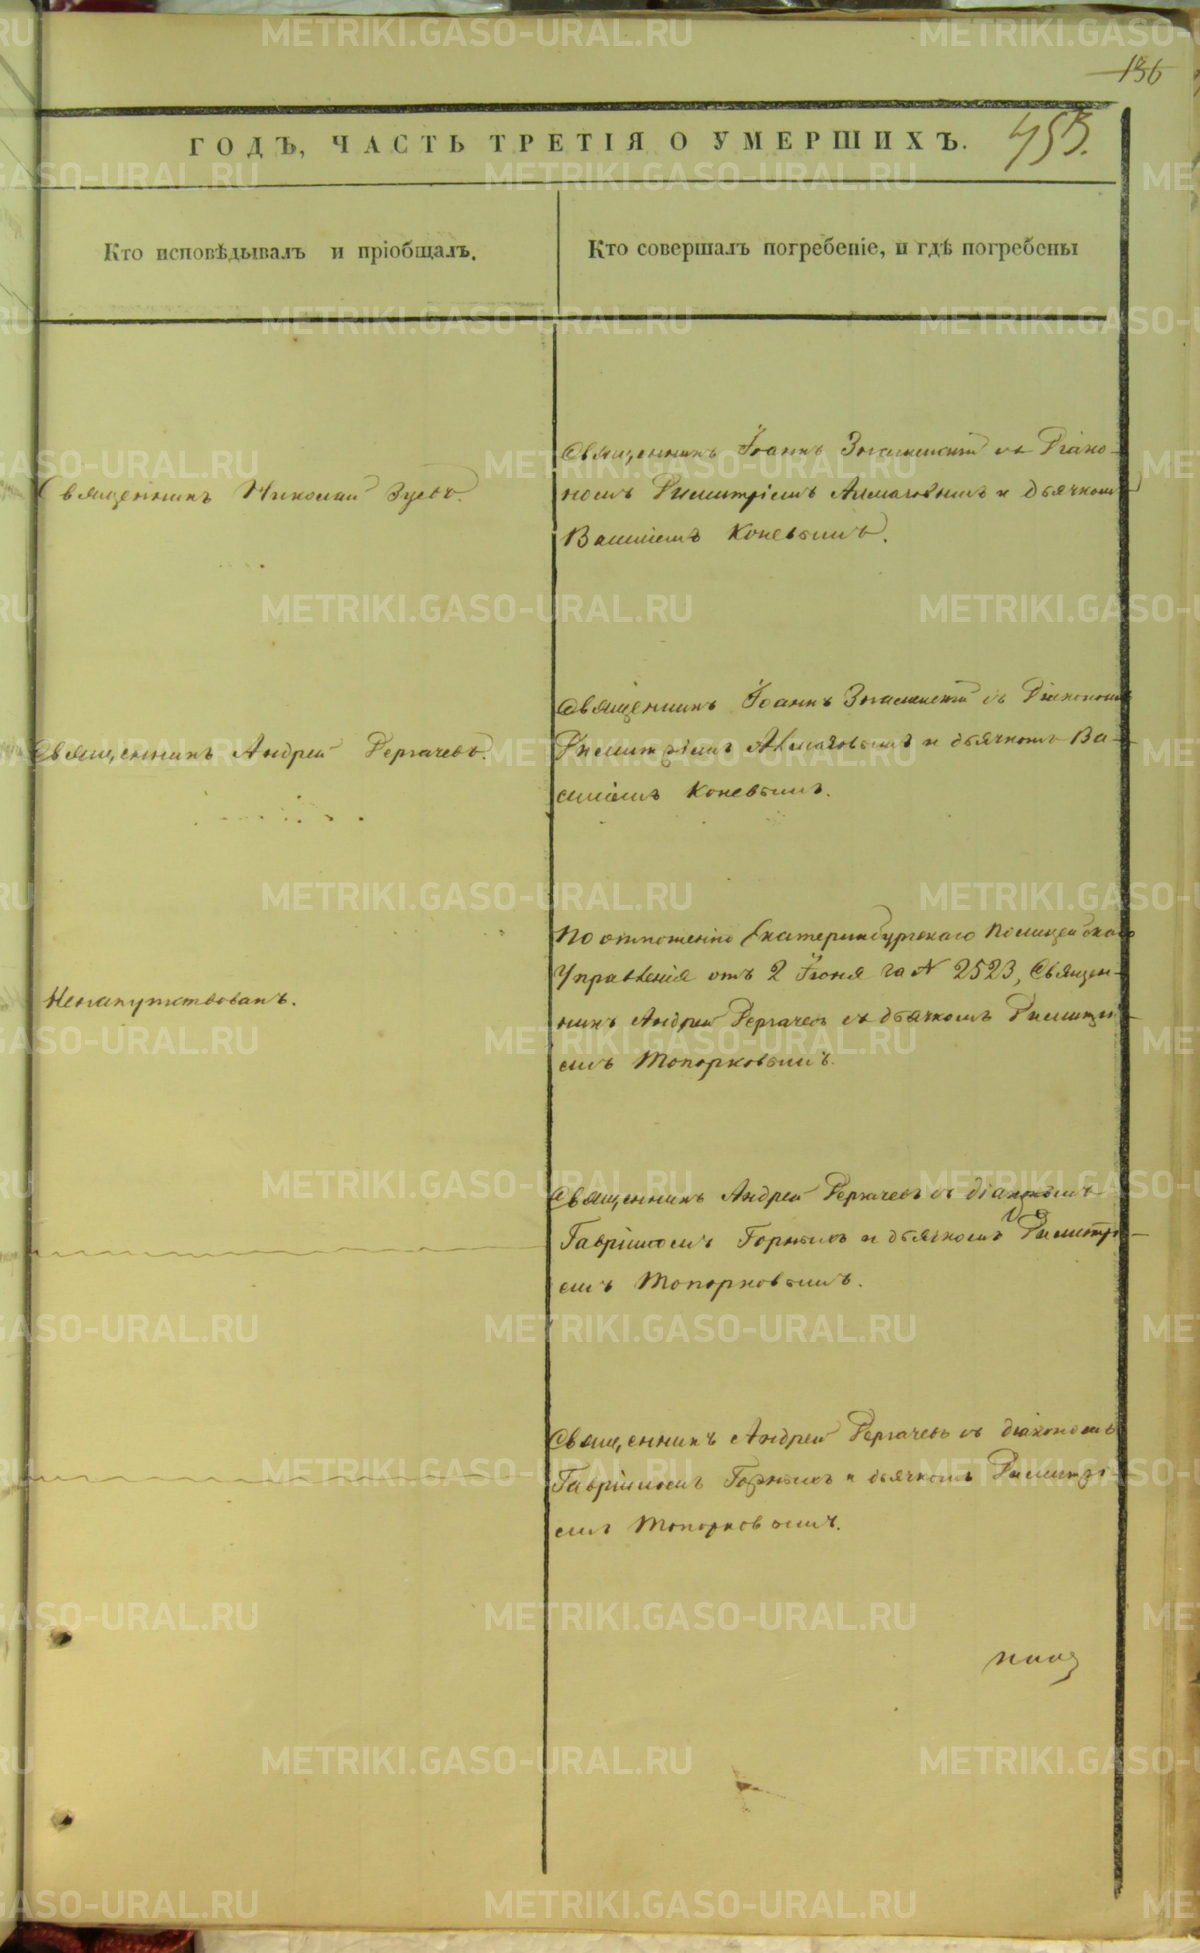 136
ГОДЪ, ЧАСТЬ ТРЕТІЯ О УМЕРШИХЪ. 453.
Кто исповѣдывалъ и пріобщалъ.
Кто совершалъ погребеніе, и гдѣ погребены
Священникъ Николай Зуевъ.
Священникъ Іоаннъ Знаменскій съ Діако-
номъ Димитріемъ Алмачовымъ и дьячкомъ
Василіемъ Коневымъ.
Священникъ Андрей Дергачевъ.
Священникъ Іоаннъ Знаменскій съ Діакономъ
Димитріемъ Алмачовымъ и дьячкомъ Ва-
силіемъ Коневымъ.
Ненапутствованъ.
По отношенію Екатеринбургскаго Полицейскаго
Управленія отъ 2 Іюня за № 2523, Священ-
никъ Андрей Дергачевъ съ дьячкомъ Димитрі-
емъ Топорковымъ.
Священникъ Андрей Дергачевъ съ діакономъ
Гавріиломъ Горныхъ и дьячкомъ Димитрі-
емъ Топорковымъ.
Священникъ Андрей Дергачевъ съ діакономъ
Гавріиломъ Горныхъ и дьячкомъ Димитрі-
емъ Топорковымъ.
METRIKI.GASO-URAL.RU